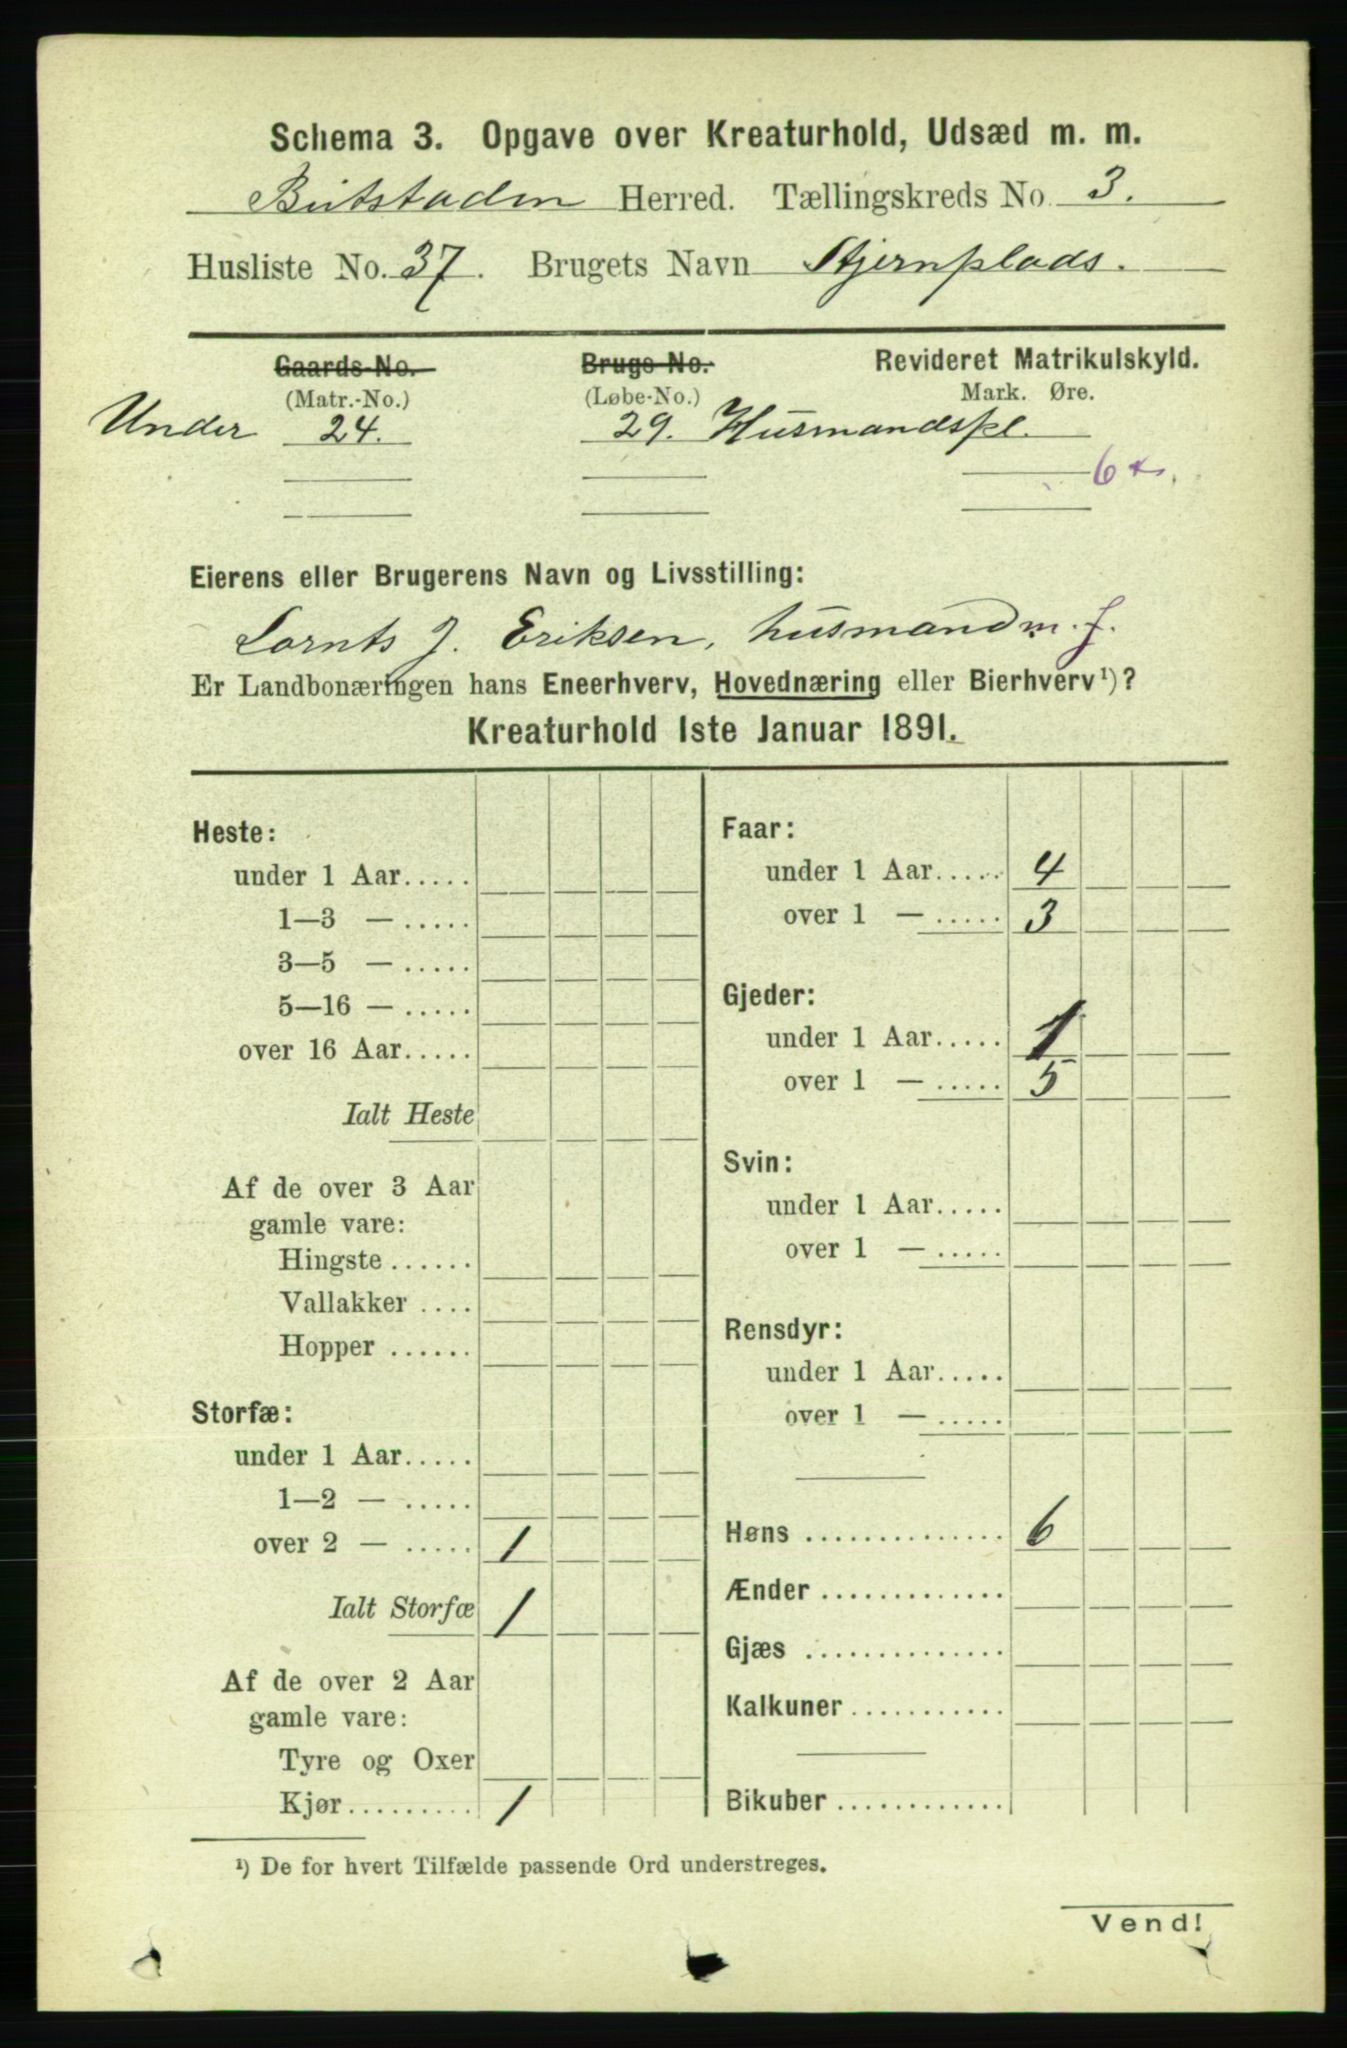 Schema 3. Opgave over Kreaturhold, Udsæd m. m.
Bitstaden Herred. Tællingskreds No. 3.
Husliste No. 37. Brugets Navn Stjernplads.
Gaards-No. Brugs-No. Revideret Matrikulskyld.
(Matr.-No.) (Løbe-No.) Mark. Øre.
Under 24. 29. Husmandspl.
6
Eierens eller Brugerens Navn og Livsstilling:
Lornts J. Eriksen, husmand m. j.
Er Landbonæringen hans Eneerhverv, Hovednæring eller Bierhverv ¹)?
Kreaturhold 1ste Januar 1891.
Heste:
under 1 Aar.....
1—3 — .....
3—5 — .....
5—16 — .....
over 16 Aar.....
Ialt Heste
Af de over 3 Aar
gamle vare:
Hingste ......
Vallakker ....
Hopper ......
Storfæ:
under 1 Aar.....
1—2 — .....
over 2 — ..... 1
Ialt Storfæ 1
Af de over 2 Aar
gamle vare:
Tyre og Oxer
Kjør......... 1
Faar:
under 1 Aar..... 4
over 1 — ..... 3
Gjeder:
under 1 Aar..... 1
over 1 — ..... 5
Svin:
under 1 Aar.....
over 1 — .....
Rensdyr:
under 1 Aar.....
over 1 — .....
Høns .............. 6
Ænder .............
Gjæs ..............
Kalkuner ...........
Bikuber ............
¹) De for hvert Tilfælde passende Ord understreges.
Vend!